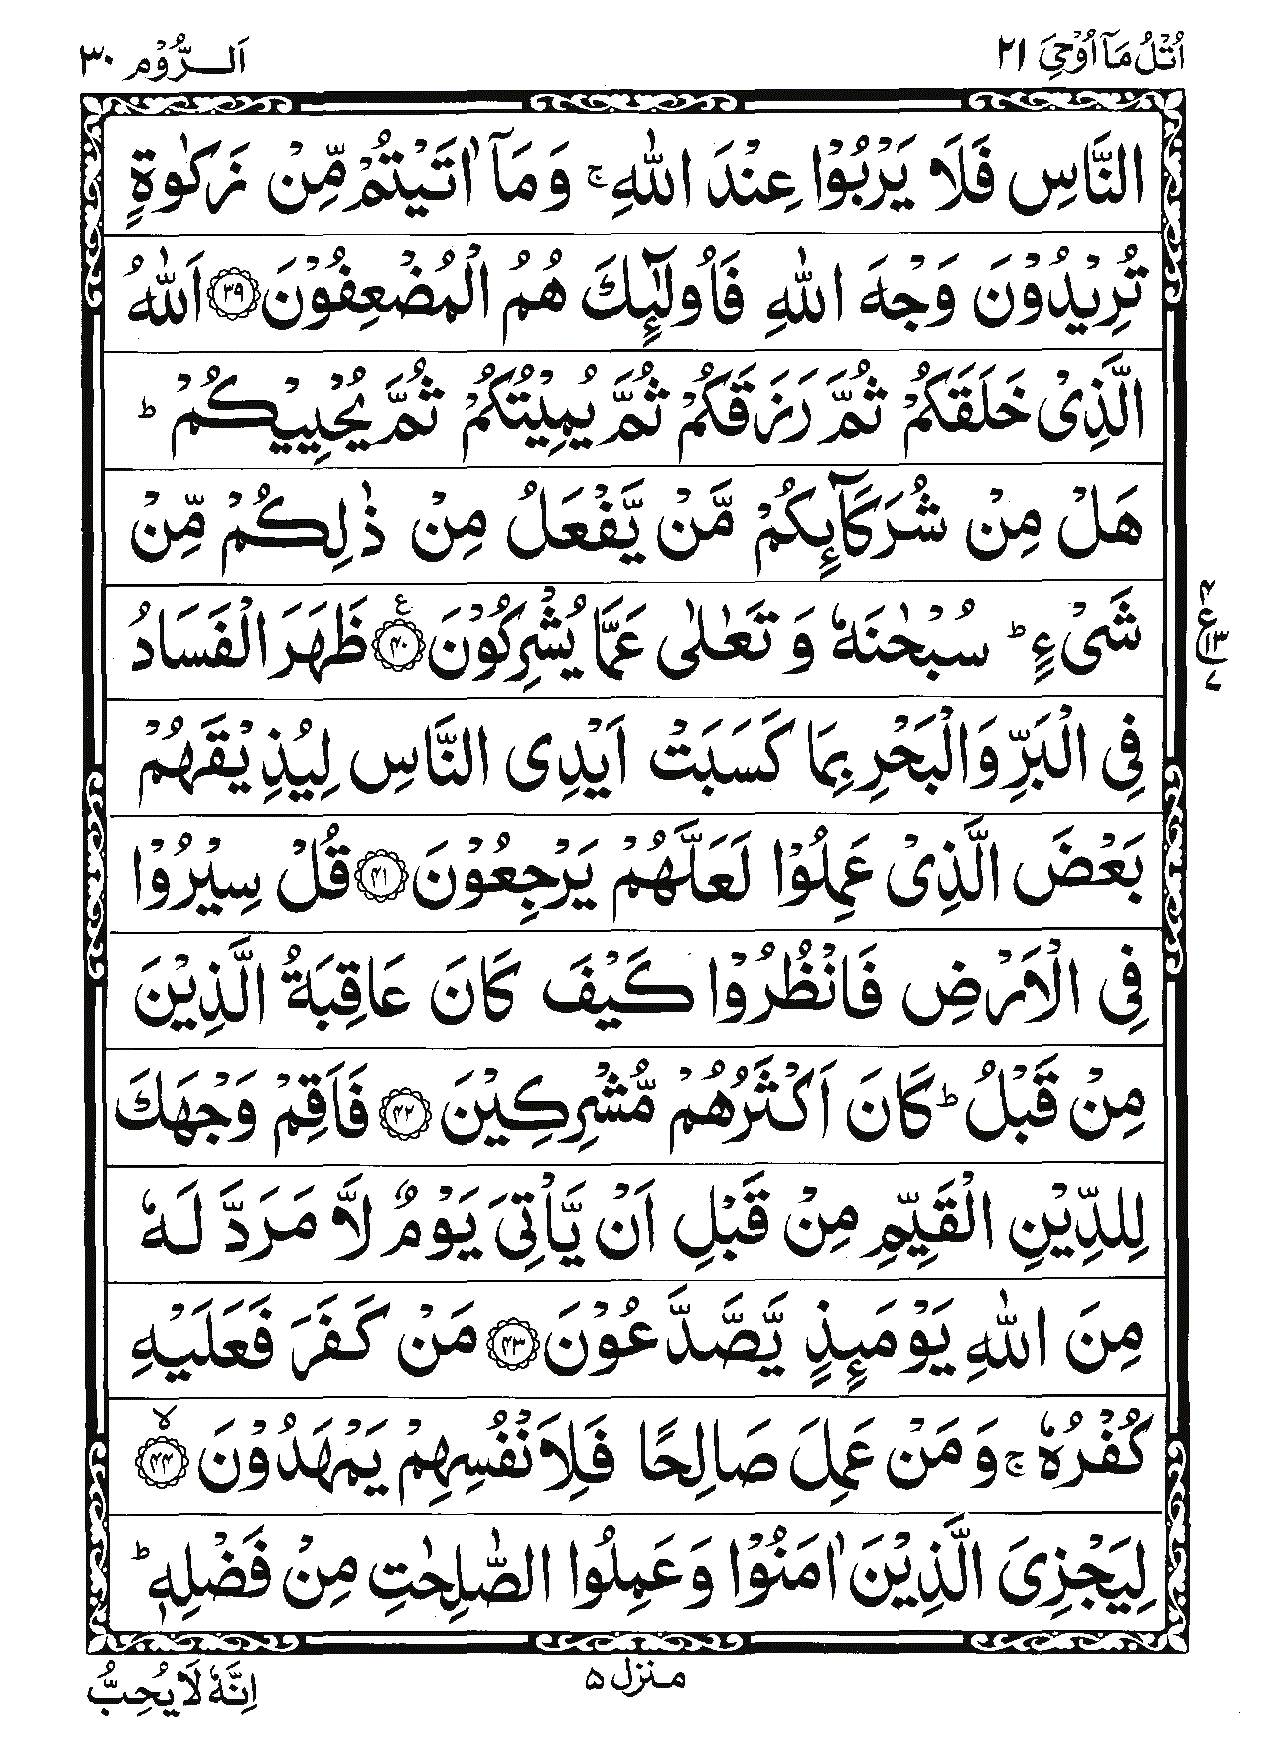 اُتْلُ مَاۤ اُوْحِیَ ۲۱
اَلرُّوْم ۳۰
النَّاسِ فَلَا یَرْبُوْا عِنْدَ اللّٰهِ ۚ وَمَاۤ اٰتَیْتُمْ مِّنْ زَكٰوةٍ
تُرِیْدُوْنَ وَجْهَ اللّٰهِ فَاُولٰٓئِكَ هُمُ الْمُضْعِفُوْنَ ﴿۳۹﴾ اَللّٰهُ
الَّذِیْ خَلَقَكُمْ ثُمَّ رَزَقَكُمْ ثُمَّ یُمِیْتُكُمْ ثُمَّ یُحْیِیْكُمْ ؕ
هَلْ مِنْ شُرَكَآئِكُمْ مَّنْ یَّفْعَلُ مِنْ ذٰلِكُمْ مِّنْ
شَیْءٍ ؕ سُبْحٰنَهٗ وَ تَعٰلٰی عَمَّا یُشْرِكُوْنَ ﴿۴۰﴾ ع ظَهَرَ الْفَسَادُ
۴ ع ۱۳ ۷
فِی الْبَرِّ وَالْبَحْرِ بِمَا كَسَبَتْ اَیْدِی النَّاسِ لِیُذِیْقَهُمْ
بَعْضَ الَّذِیْ عَمِلُوْا لَعَلَّهُمْ یَرْجِعُوْنَ ﴿۴۱﴾ قُلْ سِیْرُوْا
فِی الْاَرْضِ فَانْظُرُوْا كَیْفَ كَانَ عَاقِبَةُ الَّذِیْنَ
مِنْ قَبْلُ ؕ كَانَ اَكْثَرُهُمْ مُّشْرِكِیْنَ ﴿۴۲﴾ فَاَقِمْ وَجْهَكَ
لِلدِّیْنِ الْقَیِّمِ مِنْ قَبْلِ اَنْ یَّاْتِیَ یَوْمٌ لَّا مَرَدَّ لَهٗ
مِنَ اللّٰهِ یَوْمَئِذٍ یَّصَّدَّعُوْنَ ﴿۴۳﴾ مَنْ كَفَرَ فَعَلَیْهِ
كُفْرُهٗ ۚ وَ مَنْ عَمِلَ صَالِحًا فَلِاَنْفُسِهِمْ یَمْهَدُوْنَ ﴿۴۴﴾ ۙ
لِیَجْزِیَ الَّذِیْنَ اٰمَنُوْا وَ عَمِلُوا الصّٰلِحٰتِ مِنْ فَضْلِهٖ ؕ
منزل ۵
اِنَّهٗ لَا یُحِبُّ